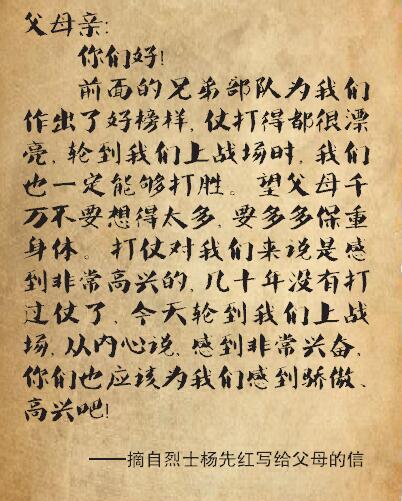 父母亲:
你们好!
前面的兄弟部队为我们
作出了好榜样,仗打得都很漂
亮,轮到我们上战场时,我们
也一定能够打胜。望父母千
万不要想得太多,要多多保重
身体。打仗对我们来说是感
到非常高兴的,几十年没有打
过仗了,今天轮到我们上战
场,从内心说,感到非常兴奋,
你们也应该为我们感到骄傲、
高兴吧!
——摘自烈士杨先红写给父母的信